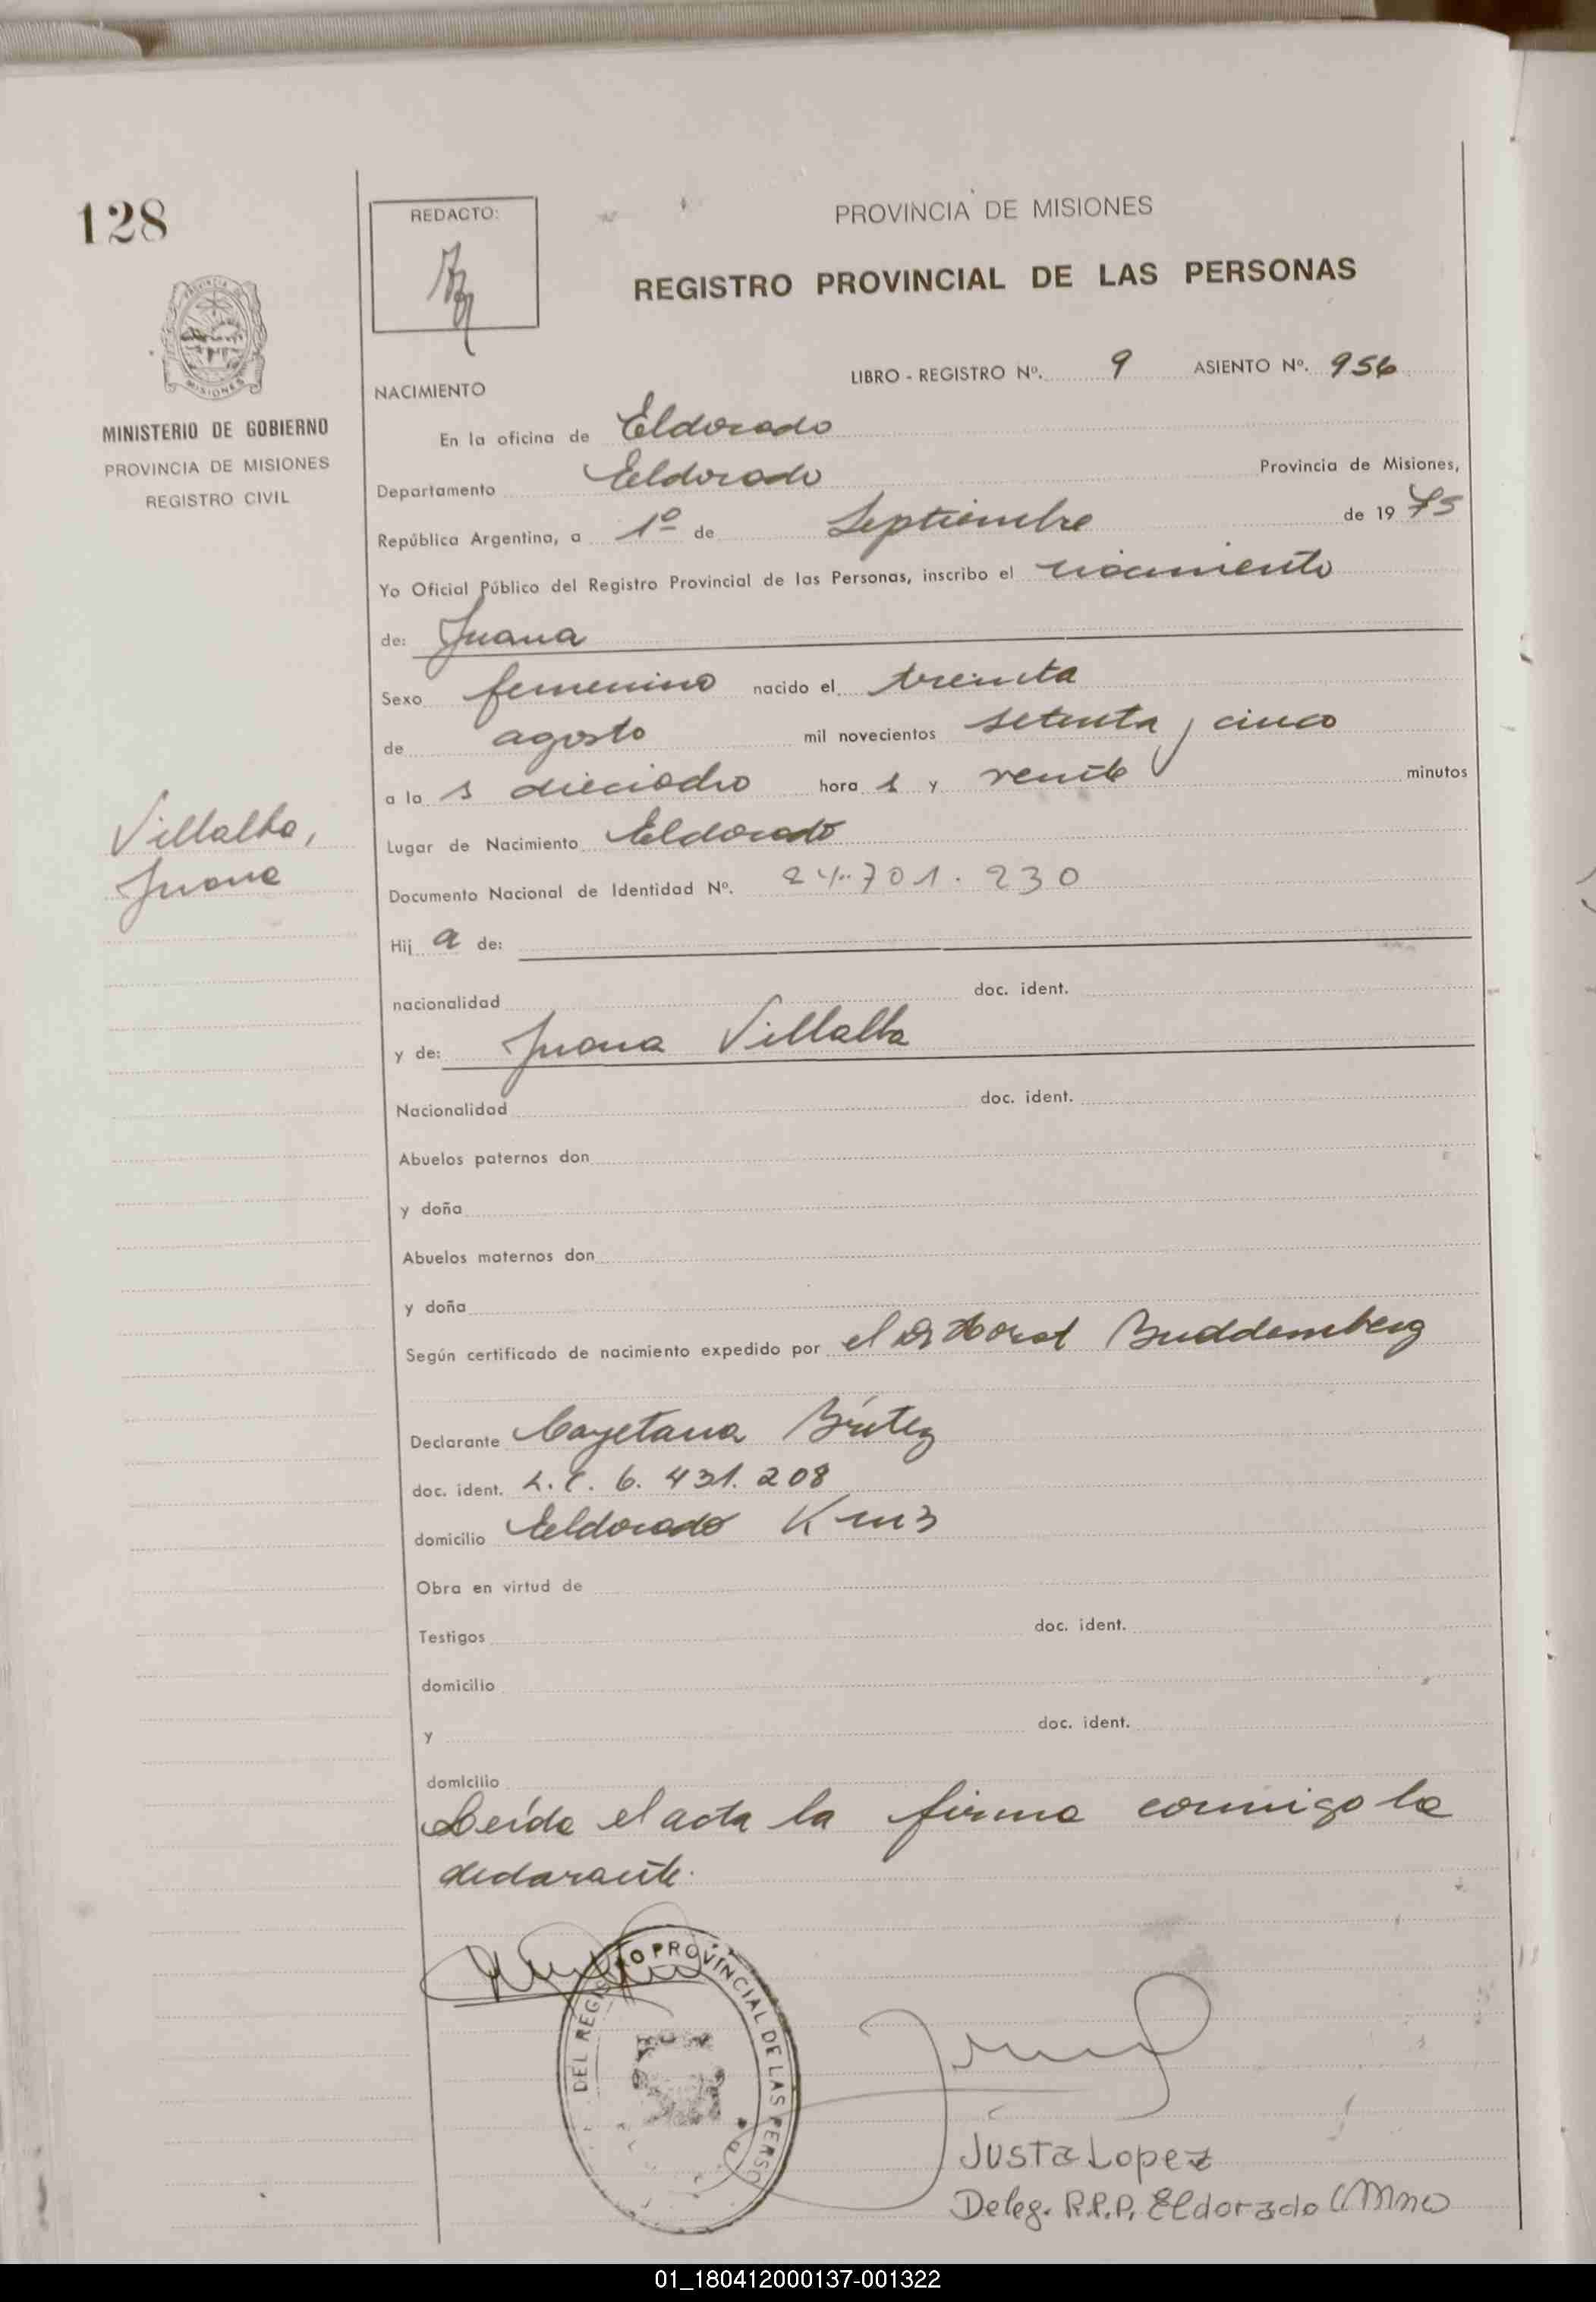 128
REDACTO:
PROVINCIA DE MISIONES
REGISTRO PROVINCIAL DE LAS PERSONAS
MINISTERIO DE GOBIERNO
PROVINCIA DE MISIONES
REGISTRO CIVIL
LIBRO - REGISTRO Nº. 9 ASIENTO Nº. 956
NACIMIENTO
En la oficina de Eldorado
Departamento Eldorado Provincia de Misiones,
República Argentina, a 1º de Septiembre de 1975
Yo Oficial Público del Registro Provincial de las Personas, inscribo el nacimiento
de: Juana
Sexo femenino nacido el treinta
de agosto mil novecientos setenta y cinco
a la s dieciocho hora s y veinte minutos
Villalba,
Juana
Lugar de Nacimiento Eldorado
Documento Nacional de Identidad Nº. 24.701.230
Hij a de:
nacionalidad doc. ident.
y de: Juana Villalba
Nacionalidad doc. ident.
Abuelos paternos don
y doña
Abuelos maternos don
y doña
Según certificado de nacimiento expedido por el Dr Horst Buddemberg
Declarante Cayetana Brítez
doc. ident. L.C. 6.431.208
domicilio Eldorado Km3
Obra en virtud de
Testigos doc. ident.
domicilio
y doc. ident.
domicilio
Leída el acta la firma conmigo la
declarante.
DEL REGISTRO PROVINCIAL DE LAS PERSO
Justa Lopez
Deleg. R.P.P. Eldorado (Mnes)
01_180412000137-001322